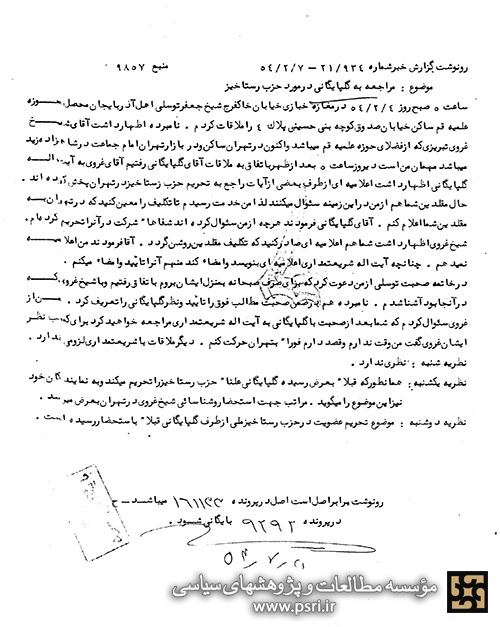 رونوشت گزارش خبر شماره ۲۱/۹۳۴ – ۵۴/۲/۷ منبع ۹۸۵۷
موضوع : مراجعه به گلپایگانی در مورد حزب رستاخیز
ساعت ۵ صبح روز ۵۴/۲/۴ در مغازه خبازی خیابان خاکفرج شیخ جعفر توسلی اهل آذربایجان محصل حوزه
علمیه قم ساکن خیابان صدوق کوچه بنی حسینی پلاک ٤ را ملاقات کردم . نامبرده اظهار داشت آقای شیخ
غروی تبریزی که از فضلای حوزه علمیه قم میباشد و اکنون در تهران ساکن و در بازار تهران امام جماعت در
میباشد مهمان من است دیروز ساعت ۵ بعد از ظهر باتفاق به ملاقات آقای گلپایگانی رفتیم آقای غروی به آیت اله
گلپایگانی اظهار داشت اعلامیه ای از طرف بعضی از آیات راجع به تحریم حزب رستاخیز در تهران پخش کرده اند .
حال مقلدین شما از من در این زمینه سئوال میکنند لذا من خدمت رسیدم تا تکلیف را معین کنید که در تهران به
مقلدین شما اعلام کنم . آقای گلپایگانی فرمودند هر چه از من سئوال کرده اند شفاها" شرکت در آنرا تحریم کرده ام .
شیخ غروی اظهار داشت شما هم اعلامیه ای صادر کنید که تکلیف مقلدین روشن گردد . آقا فرمودند من اعلامیه
نمیدهم . چنانچه آیت اله شریعتمداری اعلامیه ای بنویسد و امضاء کند منهم آنرا تایید و امضاء میکنم .
در خاتمه صحبت توسلی از من دعوت کرد که برای صرف صبحانه بمنزل ایشان بروم باتفاق رفتیم و با شیخ غروی که
در آنجا بود آشنا شدم . نامبرده هم در ضمن صحبت مطالب فوق را تایید و نظر گلپایگانی را تعریف کرد . من از
غروی سئوال کردم که شما بعد از صحبت با گلپایگانی به آیت اله شریعتمداری مراجعه خواهید کرد برای کسب نظر
ایشان غروی گفت من وقت ندارم وقصد دارم فورا" بتهران حرکت کنم . دیگر ملاقات با شریعتمداری لزومی ندارد .
نظریه شنبه : نظری ندارد .
نظریه یکشنبه : همانطور که قبلا" بعرض رسیده گلپایگانی علنا" حزب رستاخیز را تحریم میکند و به نمایندگان خود
نیز این موضوع را میگوید . مراتب جهت استحضار و شناسائی شیخ غروی در تهران بعرض میرسد .
نظریه دوشنبه : موضوع تحریم عضویت در حزب رستاخیز ملی از طرف گلپایگانی قبلا" باستحضار رسیده است .
رونوشت برابر اصل است اصل در پرونده ۱۶۱۱۳۳ میباشد – ح
در پرونده ۹۲۹۲ بایگانی شود .
مؤسسه مطالعات و پژوهشهای سیاسی
www.psri.ir